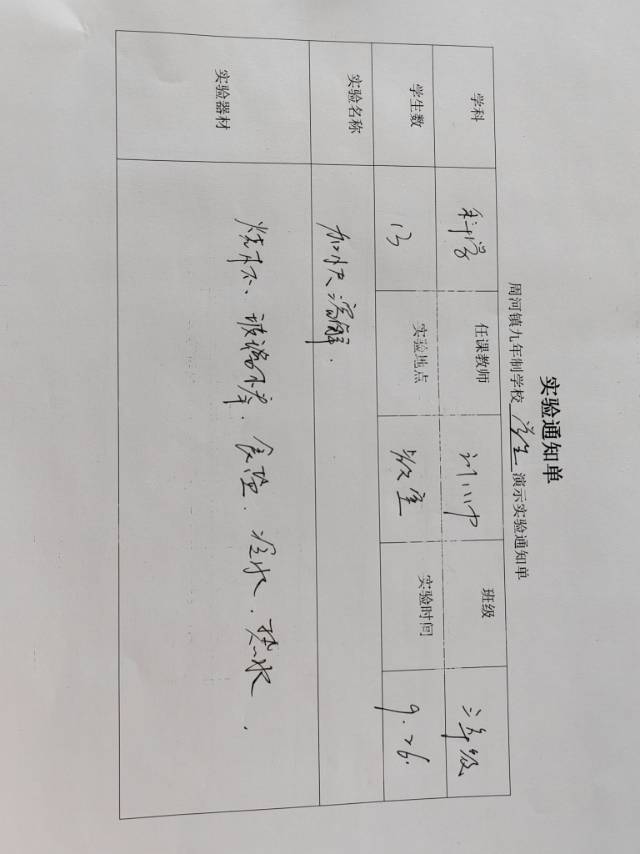 实验通知单
周河镇九年制学校 学生 演示实验通知单
学科 科学 任课教师 班级 三年级
学生数 13 实验地点 教室 实验时间 9.26.
实验名称 加快溶解.
实验器材 烧杯、玻璃棒、食盐、冷水、热水.